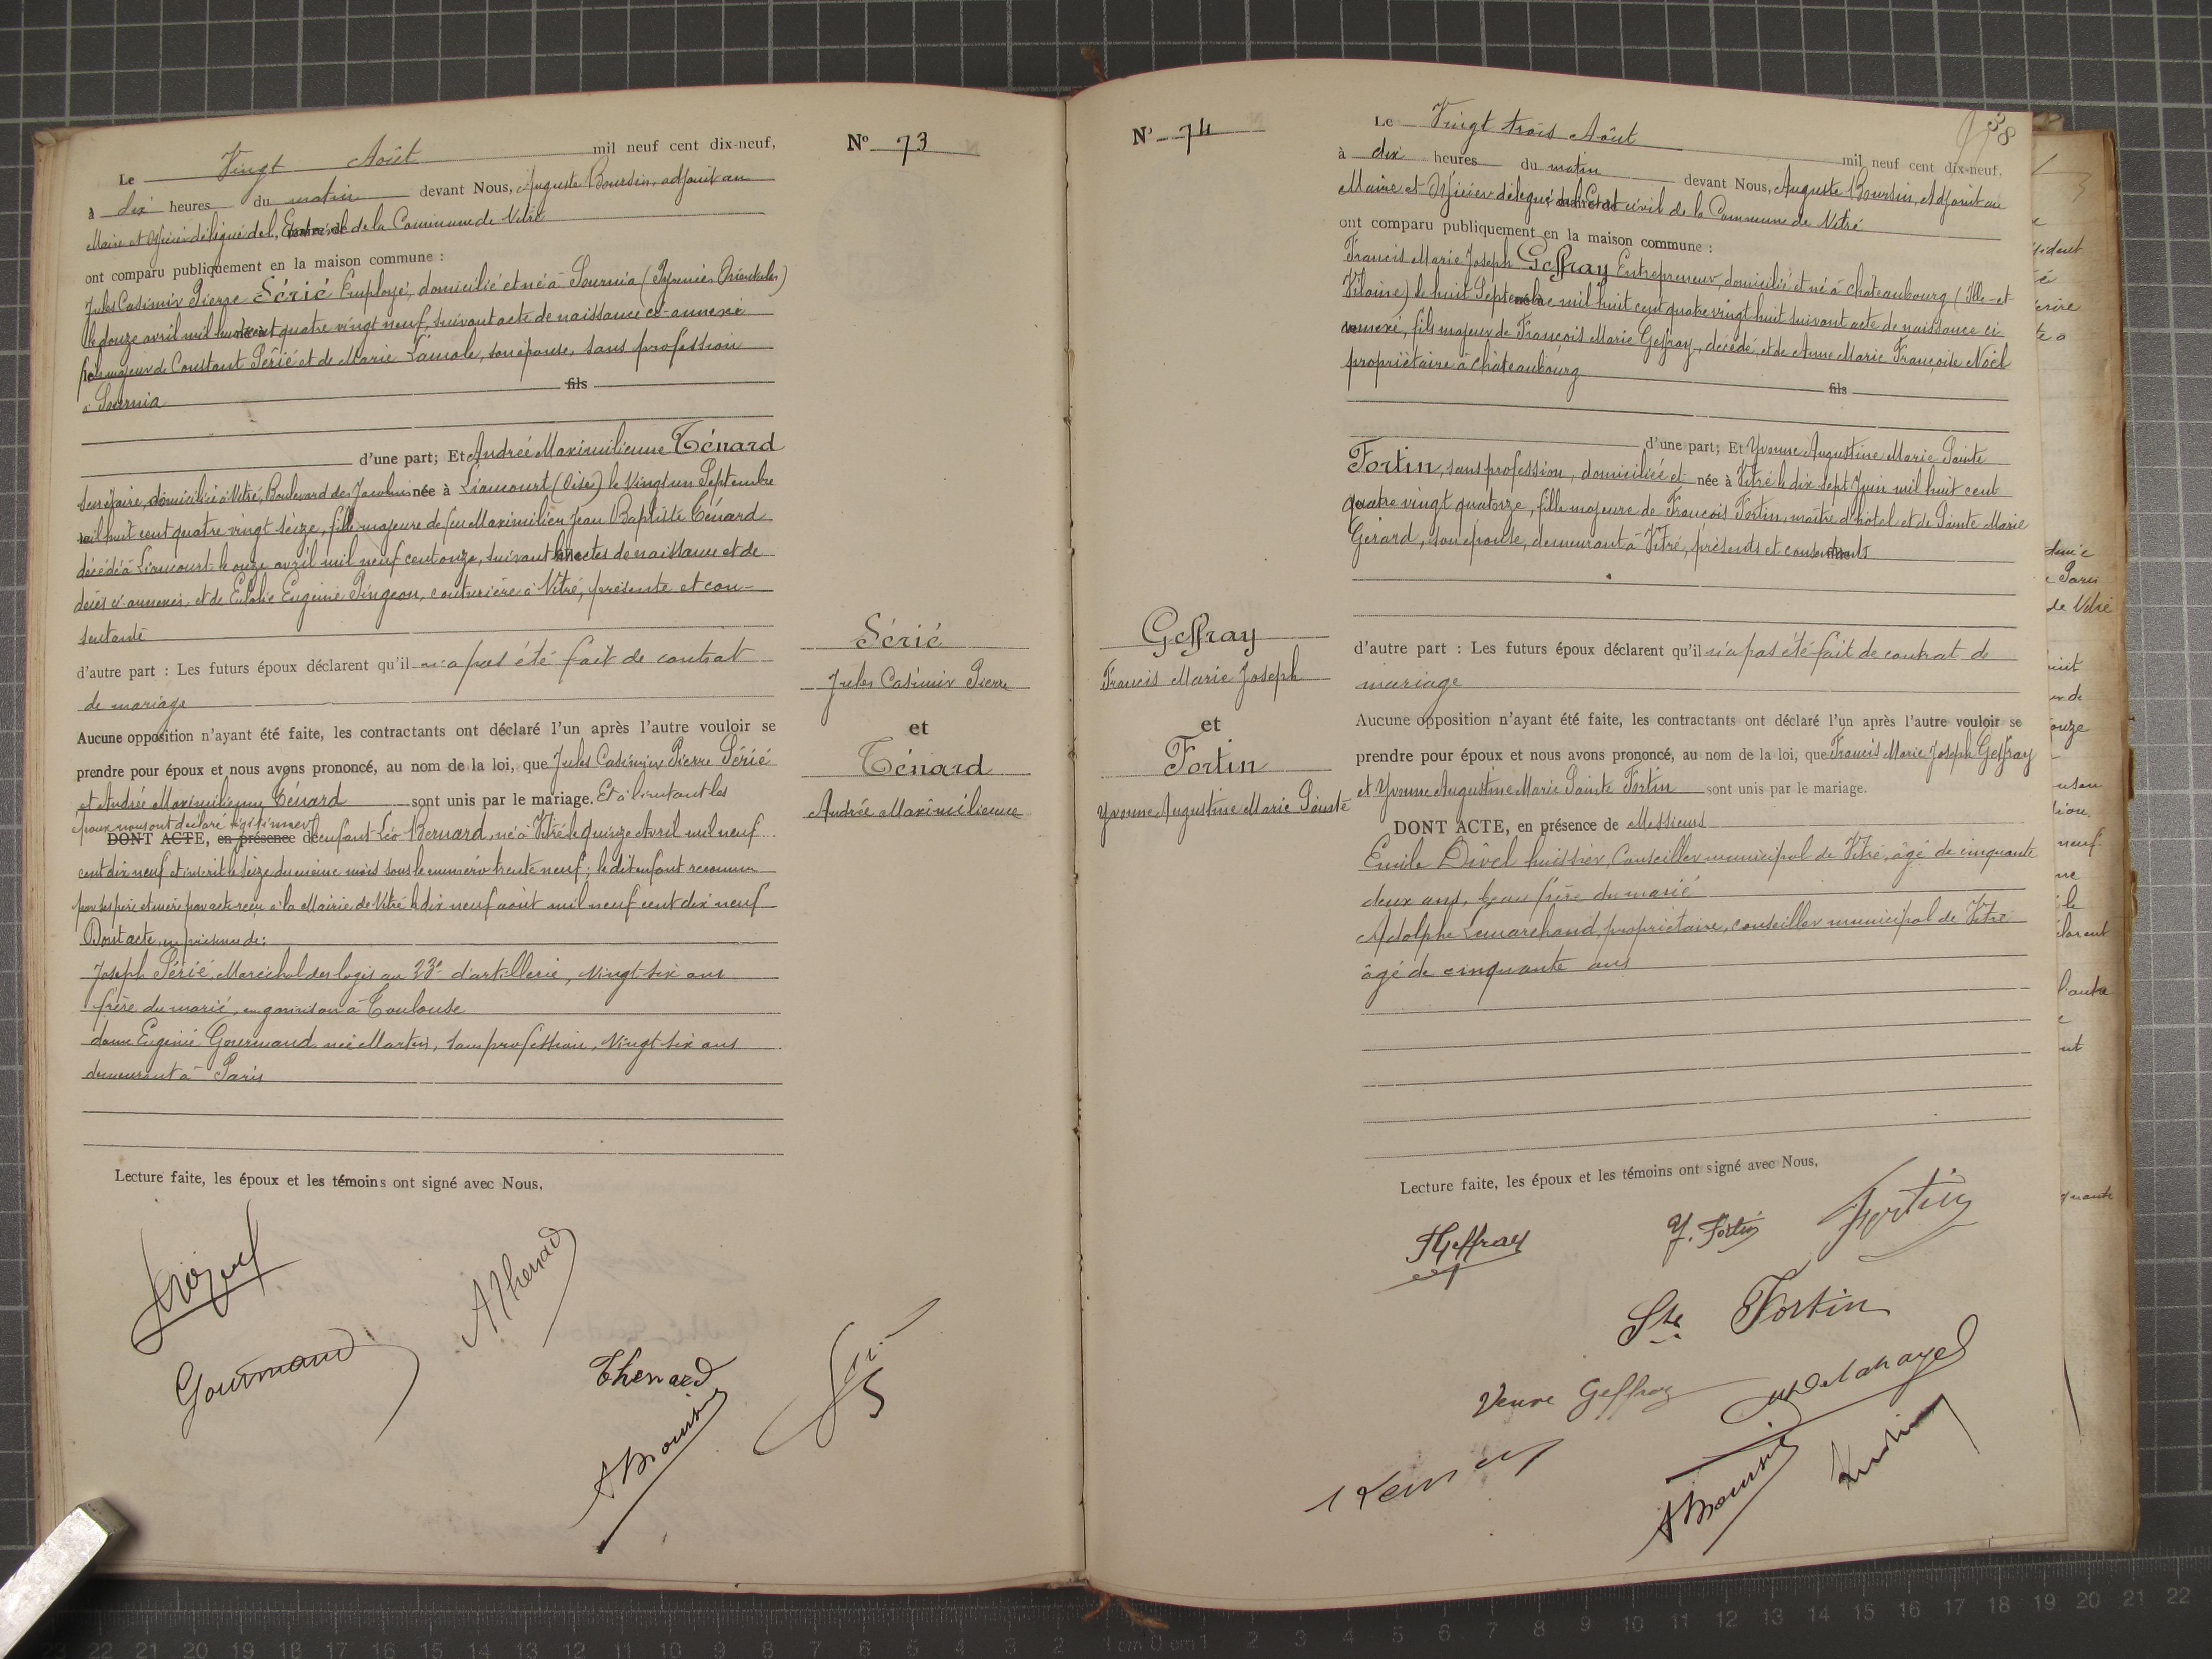 Le Vingt Août mil neuf cent dix-neuf,
à dix heures du matin devant Nous, Auguste Boursin, adjoint au
Maire et Officier délégué de l'Etat civil de la Commune de Vitré
ont comparu publiquement en la maison commune :
Jules Casimir Pierre Sérié Employé, domicilié et né à Sournia (Pyrénées Orientales)
le douze avril mil huit cent quatre vingt neuf, suivant acte de naissance ci-annexé
fils majeur de Constant Sérié et de Marie , son épouse, sans profession
fils
à Sournia
d'une part; Et Andrée Maximilienne Ténard
domiciliée à Vitré, Boulevard des Jacobins née à Liancourt (Oise) le Vingt un Septembre
mil huit cent quatre-vingt seize, fille majeure de feu Maximilien Jean Baptiste Ténard
décédé à Liancourt le onze avril mil neuf cent onze, suivant actes de naissance et de
décès ci-annexés, et de Eugénie Pingeon, couturière à Vitré, présente et con-
sentante
d'autre part : Les futurs époux déclarent qu'il n'a pas été fait de contrat
de mariage
Aucune opposition n'ayant été faite, les contractants ont déclaré l'un après l'autre vouloir se
prendre pour époux et nous avons prononcé, au nom de la loi, que Jules Casimir Pierre Sérié
et Andrée Maximilienne Ténard sont unis par le mariage. Et à l'instant les
époux nous ont déclaré légitimer l'
DONT ACTE, en présence de enfant Léo Bernard, né à Vitré le quinze Avril mil neuf
cent dix neuf et inscrit le seize du même mois sous le numéro trente neuf; le dit enfant reconnu
par ses père et mère par acte reçu à la Mairie de Vitré le dix neuf août mil neuf cent dix neuf
Dont acte, en présence de :
Joseph Sérié, Maréchal des logis au 23e d'artillerie, vingt-six ans
frère du marié, en garnison à Toulouse
dame Eugénie Gourmand née Martin, sans profession, vingt six ans
demeurant à Paris
Lecture faite, les époux et les témoins ont signé avec Nous,
A Thenard
Gourmand
Thenard
A Boursin
No 73
Sérié
Jules Casimir Pierre
et
Ténard
Andrée Maximilienne
No 74
Geffray
Francis Marie Joseph
et
Fortin
Yvonne Augustine Marie Sainte
38
Le Vingt trois Août mil neuf cent dix-neuf.
à dix heures du matin devant Nous, Auguste Boursin, Adjoint au
Maire et Officier délégué de l'Etat civil de la Commune de Vitré
ont comparu publiquement en la maison commune :
Francis Marie Joseph Geffray Entrepreneur, domicilié et né à Châteaubourg (Ille-et-
Vilaine) le huit Septembre mil huit cent quatre vingt huit suivant acte de naissance ci-
annexé, fils majeur de François Marie Geffray, décédé, et de Anne Marie Françoise Noël
propriétaire à Châteaubourg
fils
d'une part; Et Yvonne Augustine Marie Sainte
Fortin, sans profession, domiciliée et née à Vitré le dix sept Juin mil huit cent
quatre vingt quatorze, fille majeure de François Fortin, maître d'hôtel et de Sainte Marie
Gérard, son épouse, demeurant à Vitré, présents et consentants
d'autre part : Les futurs époux déclarent qu'il n'a pas été fait de contrat de
mariage
Aucune opposition n'ayant été faite, les contractants ont déclaré l'un après l'autre vouloir se
prendre pour époux et nous avons prononcé, au nom de la loi, que Francis Marie Joseph Geffray
et Yvonne Augustine Marie Sainte Fortin sont unis par le mariage.
DONT ACTE, en présence de Messieurs
Emile huissier, Conseiller municipal de Vitré, âgé de cinquante
deux ans, beau frère du marié
Adolphe Lemarchand, propriétaire, conseiller municipal de Vitré
âgé de cinquante ans
Lecture faite, les époux et les témoins ont signé avec Nous,
F Geffray
Y. Fortin
Fortin
Ste Fortin
Veuve Geffray
A Boursin
23 22 21 20 19 18 17 16 15 14 13 12 11 10 9 8 7 6 5 4 3 2 1 cm 0 cm 1 2 3 4 5 6 7 8 9 10 11 12 13 14 15 16 17 18 19 20 21 22